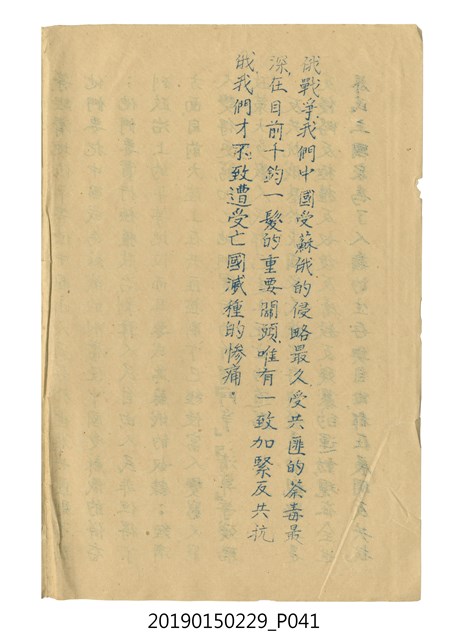 俄戰爭我們中國受蘇俄的侵略最久受共匪的荼毒最
深在目前千鈞一髮的重要關頭唯有一致加緊反共抗
俄我們才不致遭受亡國滅種的慘痛。
20190150229_P041